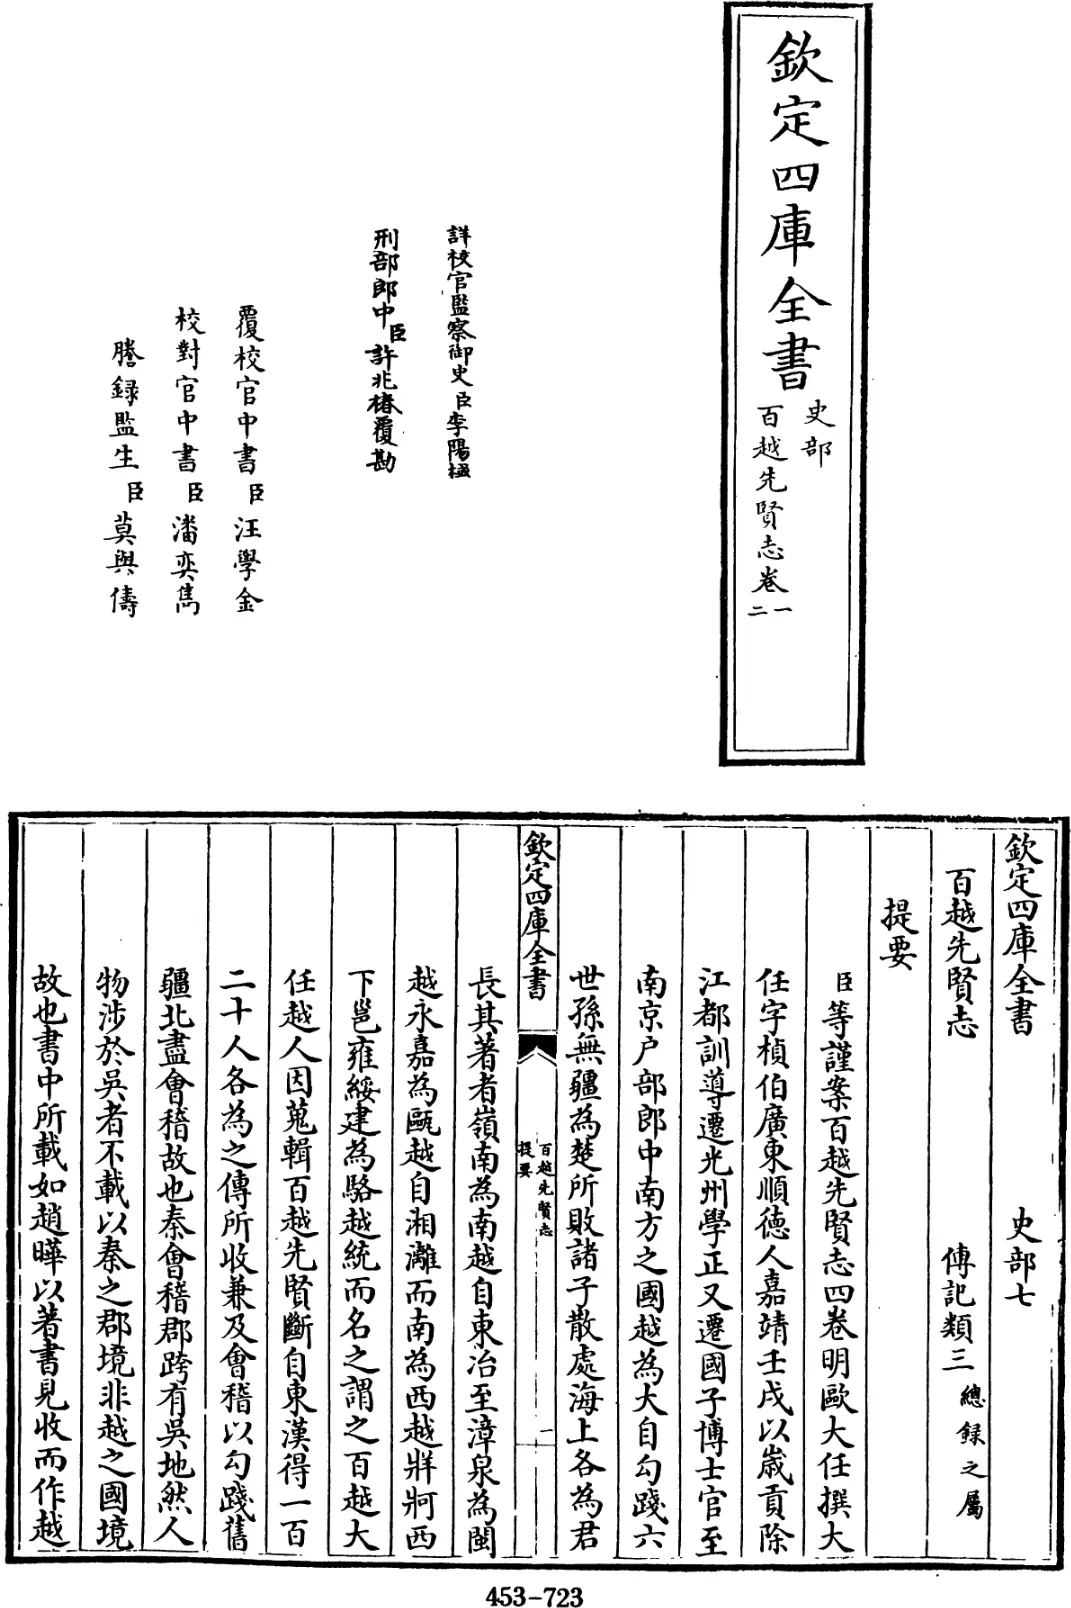 欽定四庫全書
史部
百越先賢志卷一二
詳校官監察御史臣李陽棫
刑部郎中臣許兆椿覆勘
覆校官中書臣汪學金
校對官中書臣潘奕雋
謄錄監生臣莫與儔
欽定四庫全書 史部七
百越先賢志 傳記類三 總錄之屬
提要
臣等謹案百越先賢志四卷明歐大任撰大
任字楨伯廣東順德人嘉靖壬戌以歲貢除
江都訓導遷光州學正又遷國子博士官至
南京户部郎中南方之國越為大自勾踐六
世孫無疆為楚所敗諸子散處海上各為君
欽定四庫全書
百越先賢志
提要
一
長其著者嶺南為南越自東冶至漳泉為閩
越永嘉為甌越自湘灕而南為西越牂牁西
下邕雍綏建為駱越統而名之謂之百越大
任越人因蒐輯百越先賢斷自東漢得一百
二十人各為之傳所收兼及會稽以勾踐舊
疆北盡會稽故也秦會稽郡跨有吳地然人
物涉於吳者不載以秦之郡境非越之國境
故也書中所載如趙曄以著書見收而作越
453-723